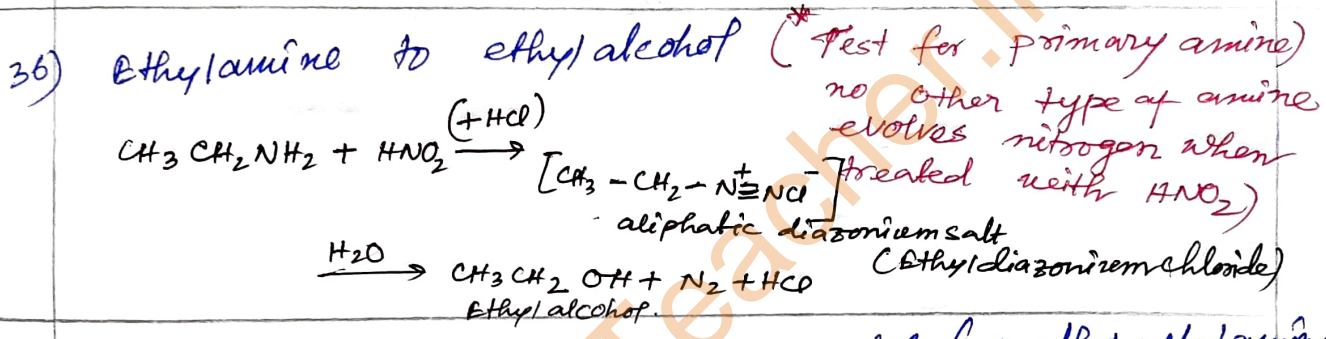 36) Ethylamine to ethyl alcohol (* Test for primary amine)
no other type of amine
evolves nitrogen when
treated with HNO2)
CH3 CH2 NH2 + HNO2 (+HCl) →
[CH3 – CH2 – N+≡NCl-]
aliphatic diazonium salt
(Ethyldiazonium chloride)
H2O → CH3 CH2 OH + N2 + HCl
Ethyl alcohol.
Teacher.